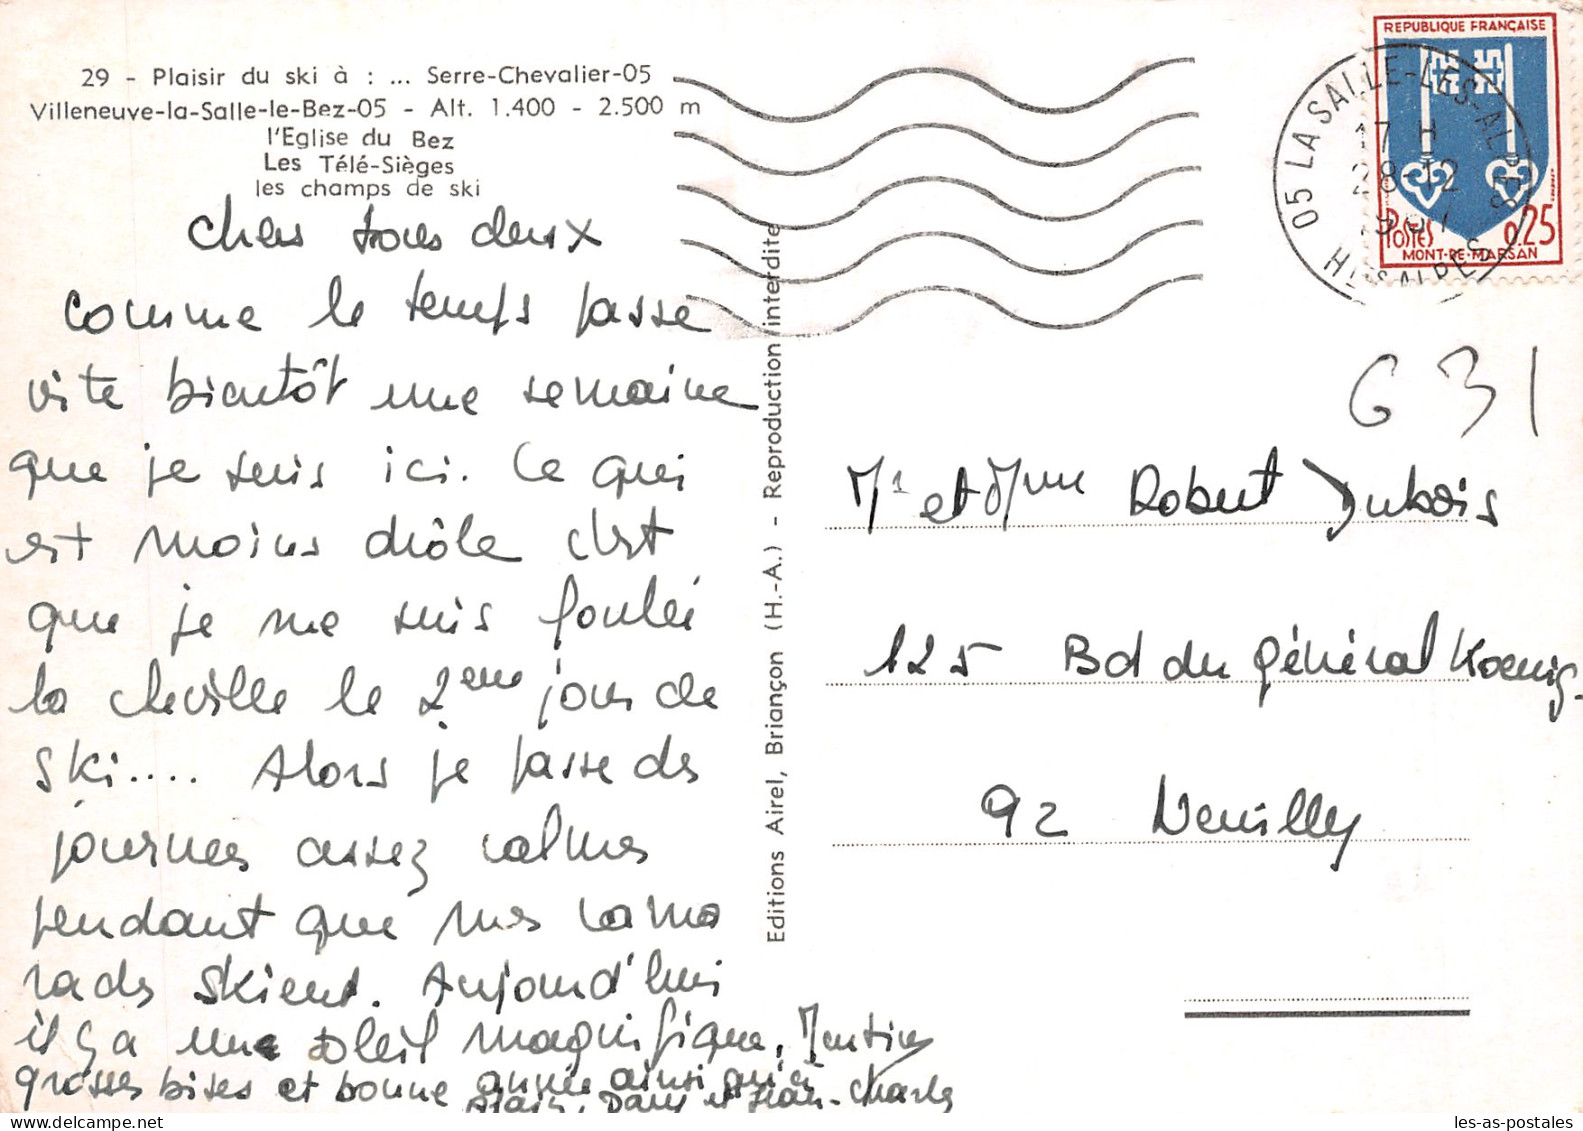 29 - Plaisir du ski à : ... Serre-Chevalier-05
Villeneuve-la-Salle-le-Bez-05 - Alt. 1.400 - 2.500 m
l'Eglise du Bez
Les Télé-Sièges
les champs de ski
Chers tous deux
comme le temps passe
vite bientôt une semaine
que je suis ici. Ce qui
est moins drôle c'est
que je me suis foulée
la cheville le 2eme jour de
ski.... Alors je passe des
journées assez calmes
pendant que mes cama
rades skient. Aujourd'hui
il y a une soleil magnifique.
grosses bises et bonne année ainsi qu'à
Alain, Dany et Jean-Charles
Editions Airel, Briançon (H.-A.) - Reproduction interdite
REPUBLIQUE FRANÇAISE
POSTES 0,25
MONT-DE-MARSAN
05 LA SALLE-LES-ALPES
17 H
28-12
HTES ALPES
G 31
Mr et Mme Robert Dubois
125 Bd du Général Koenig
92 Neuilly
les-as-postales